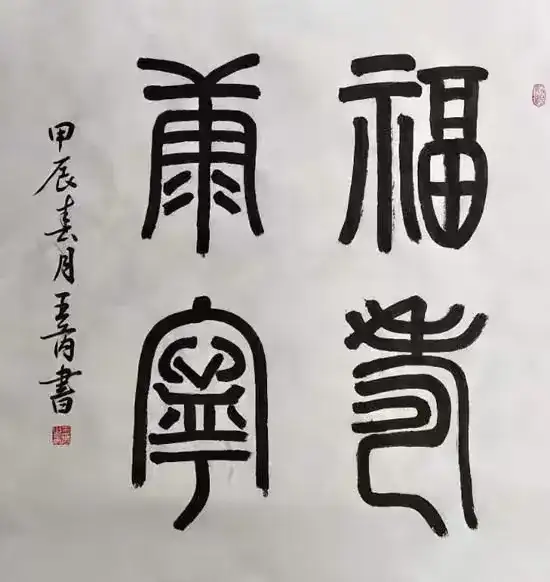 福壽
康寧
甲辰春月王書